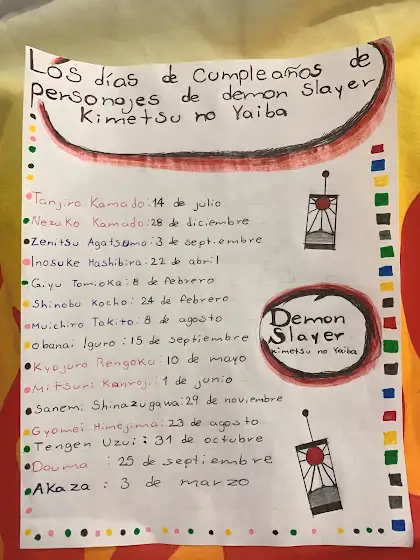 Los días de Cumpleaños de
personajes de demon Slayer
Kimetsu no Yaiba
Tanjiro Kamado: 14 de julio
Nezuko Kamado: 28 de diciembre
Zenitsu Agatsuma: 3 de septiembre
Inosuke Hashibira: 22 de abril
Giyu Tomioka: 8 de febrero
Shinobu Kocho: 24 de febrero
Muichiro Tokito: 8 de agosto
Obanai Iguro: 15 de septiembre
Kyojuro Rengoku: 10 de mayo
Mitsuri Kanroji: 1 de junio
Sanemi Shinazugawa: 29 de noviembre
Gyomei Himejima: 23 de agosto
Tengen Uzui: 31 de octubre
Douma: 25 de septiembre
Akaza: 3 de marzo
Demon
Slayer
Kimetsu no Yaiba